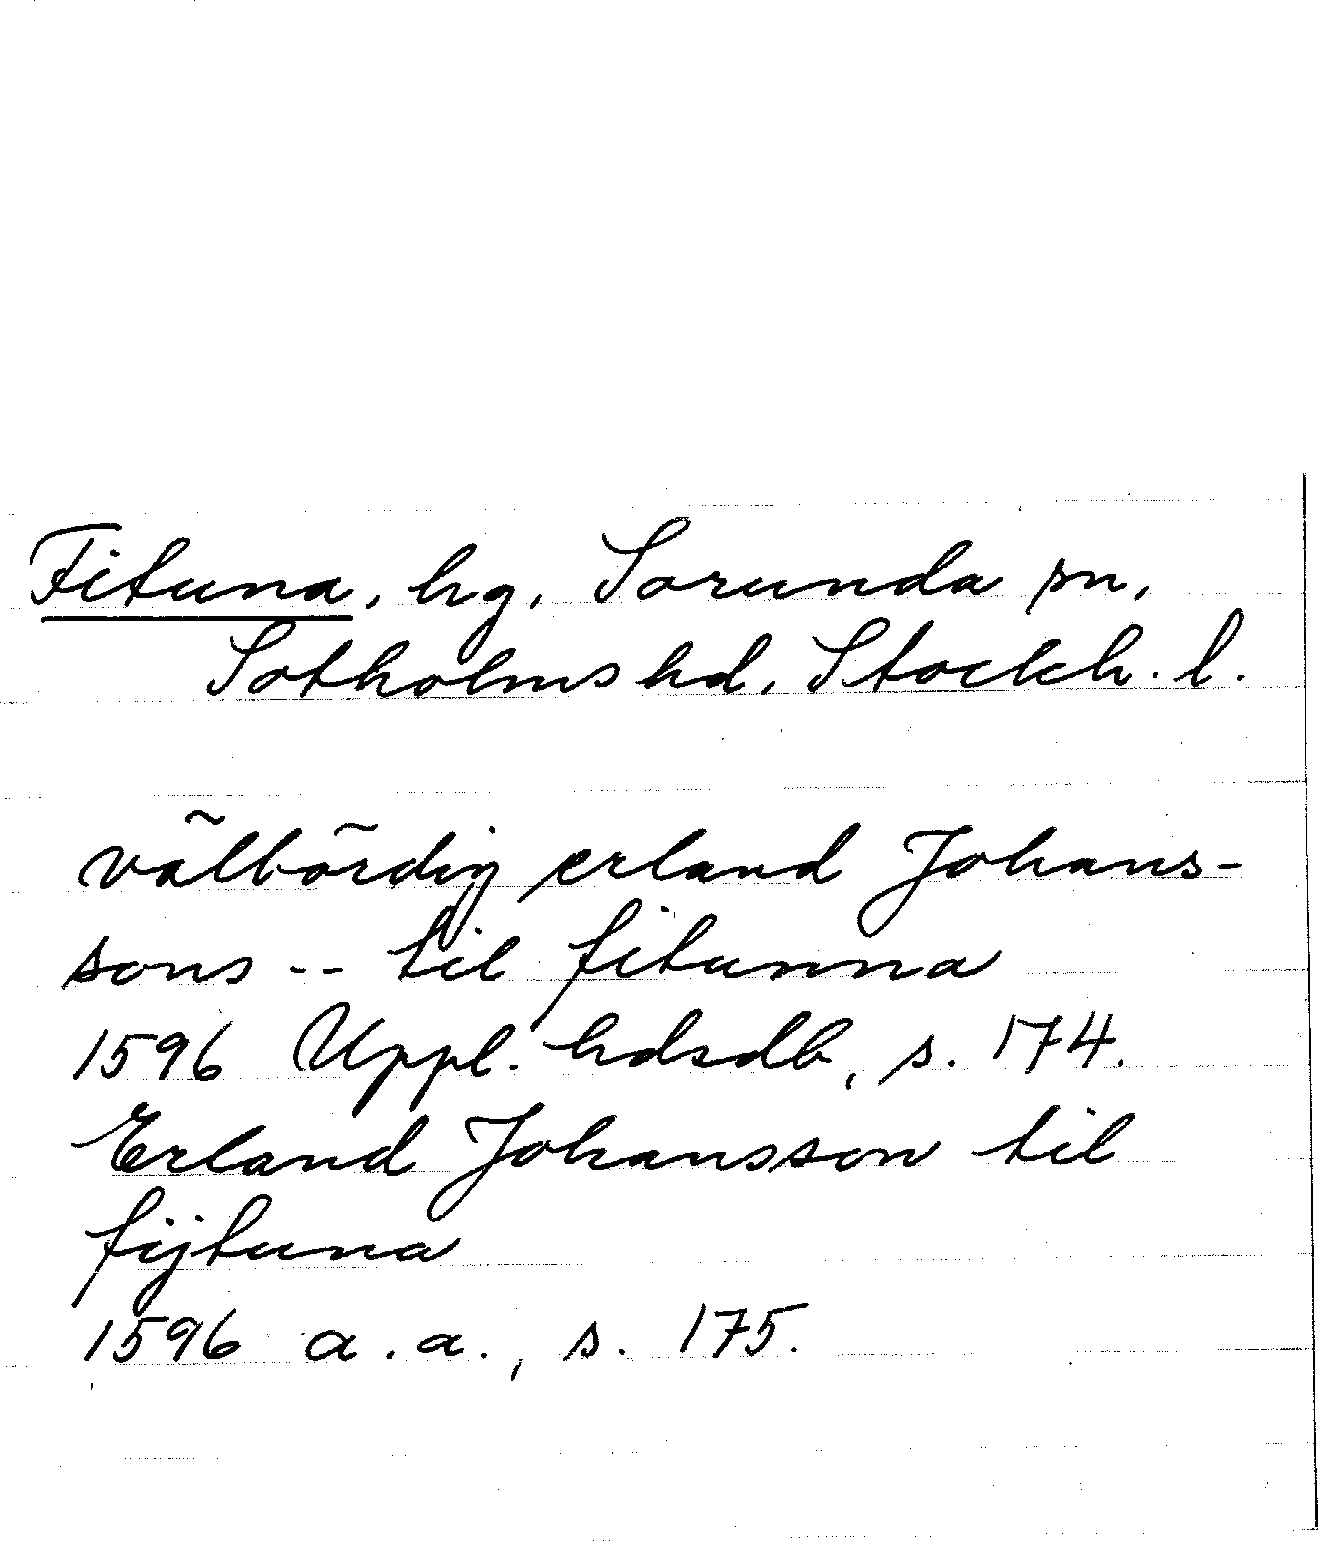 Fituna, hg, Sorunda sn,
Sotholms hd, Stockh. l.
välbördig erland Johans-
sons -- til fitunna
1596 Uppl. hdsdb, s. 174.
Erland Johansson til
fijtuna
1596 a.a., s. 175.